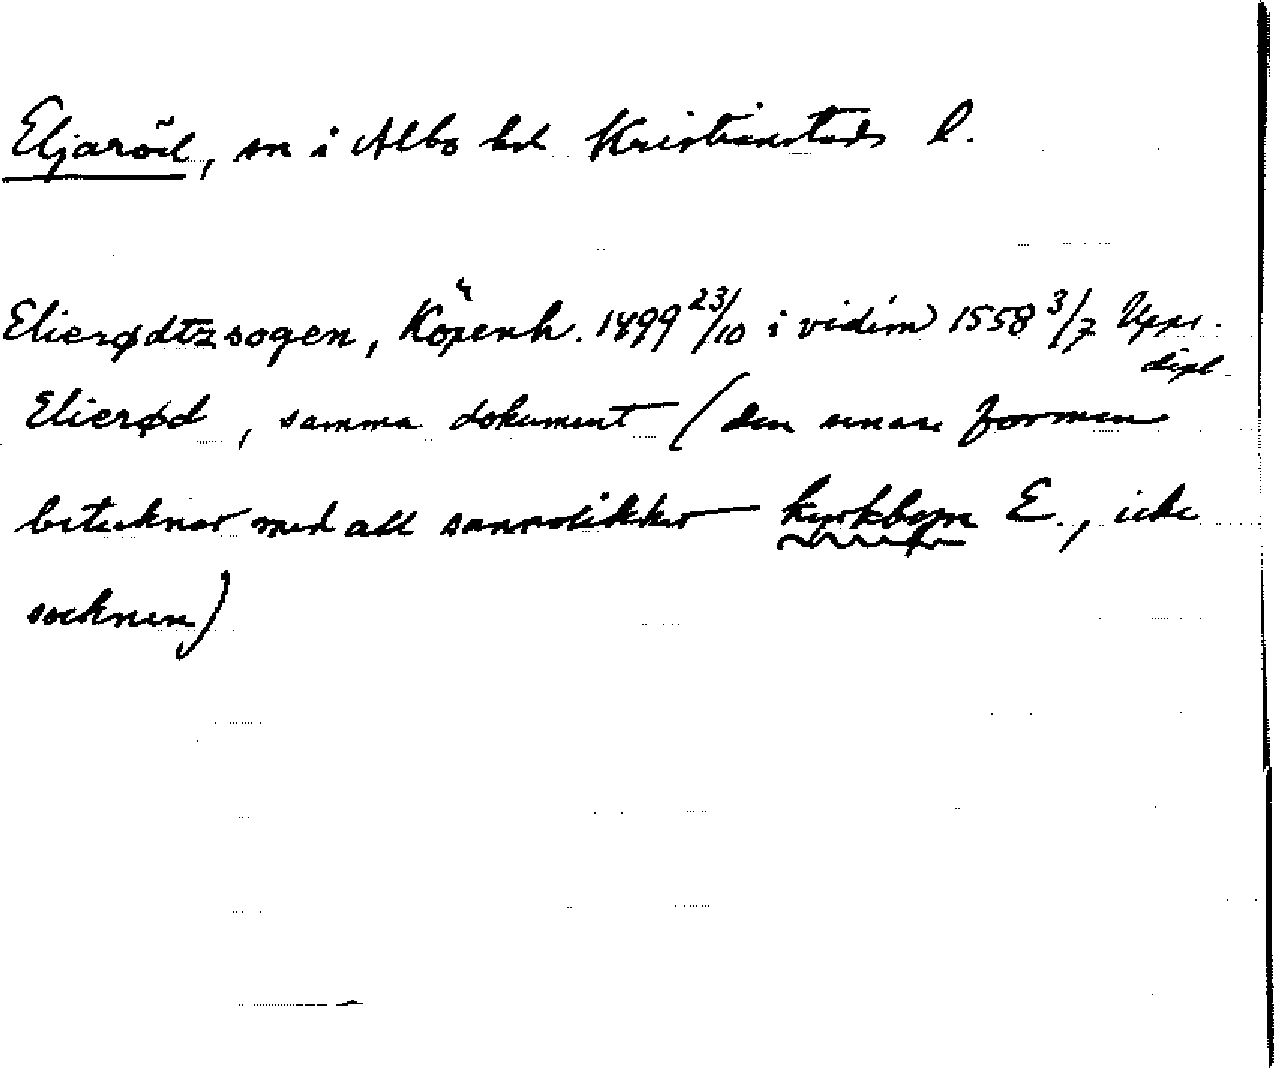 Eljaröd, sn i Albo hd Kristianstads l.
Elierødtz sogen, Köpenh. 1499 23/10 i vidim 1558 3/7 Uppr.
dipl
Elierød, samma dokument (den senare formen
betecknar med all sannolikhet kyrkbyn E., icke
socknen)